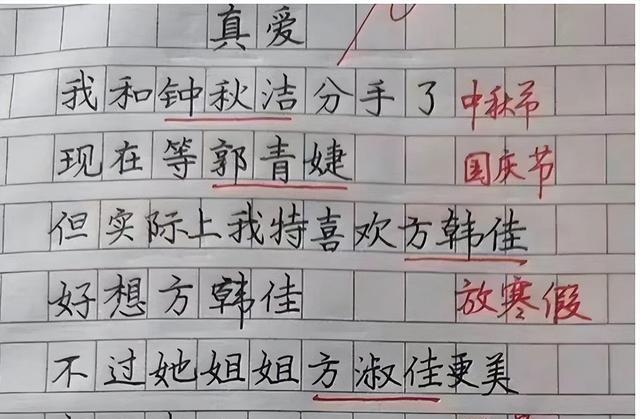 真爱
我和钟秋洁分手了 中秋节
现在等郭青婕 国庆节
但实际上我特喜欢方韩佳
好想方韩佳 放寒假
不过她姐姐方淑佳更美